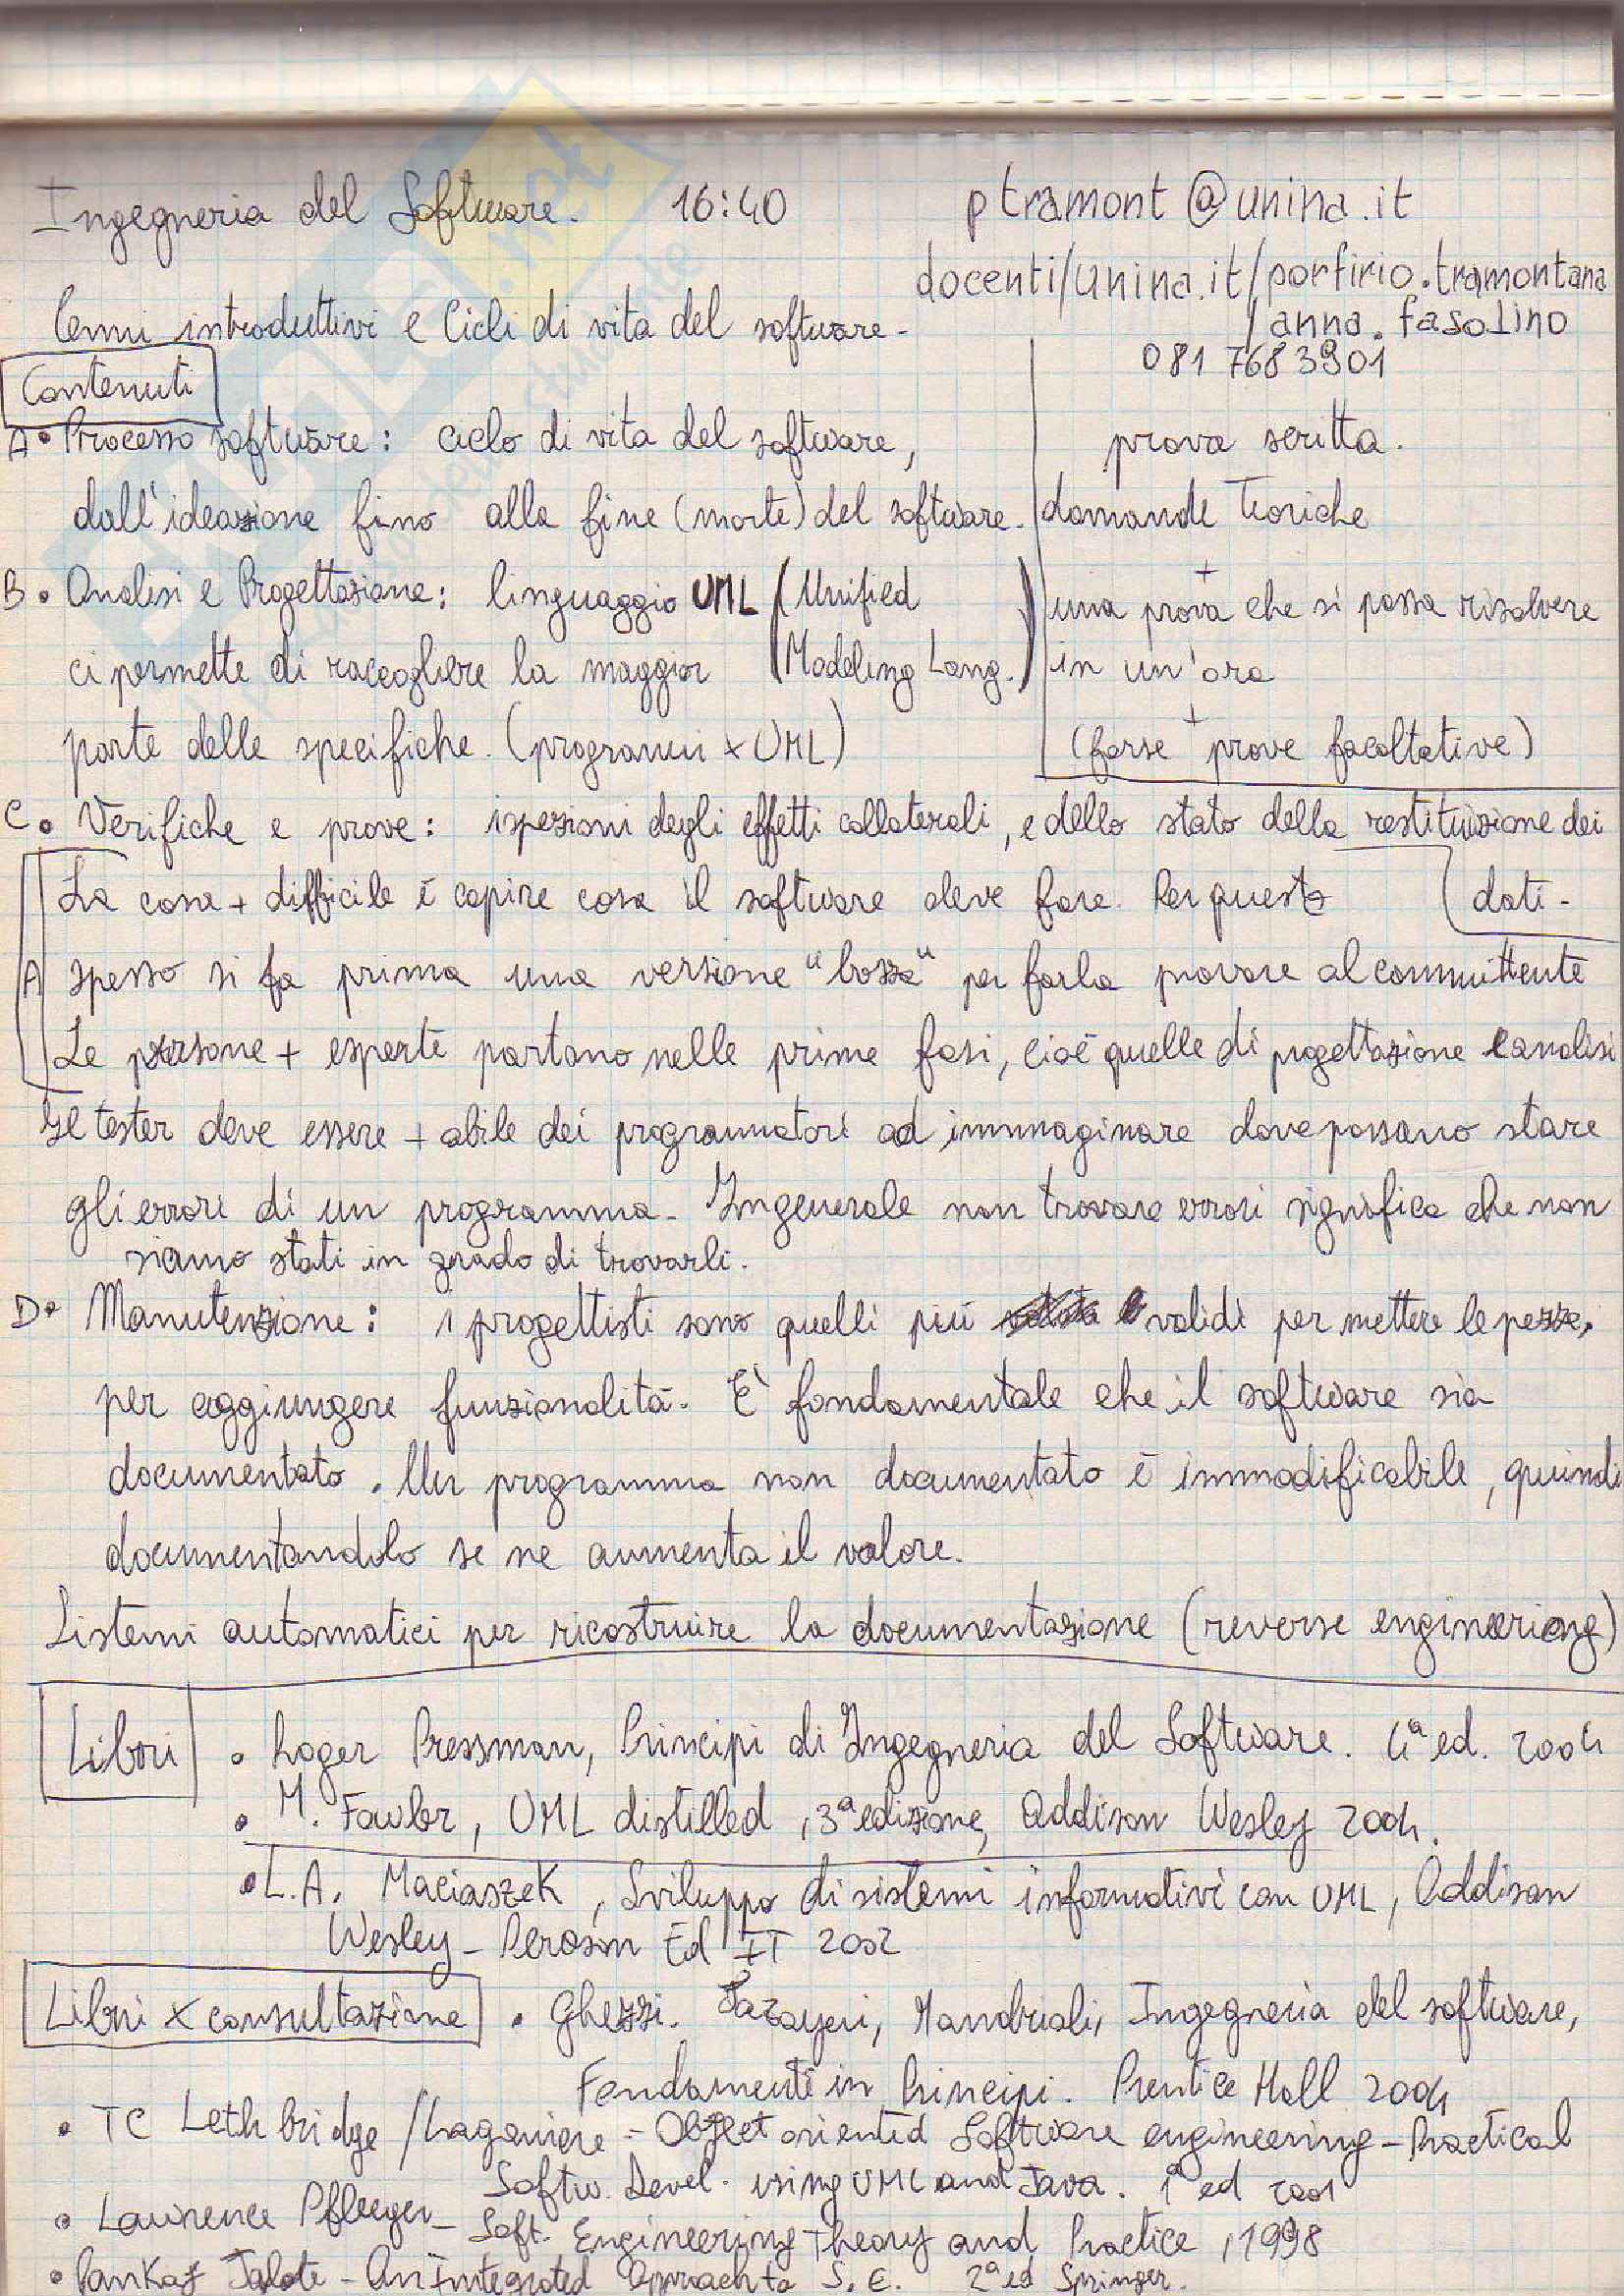 Ingegneria del Software. 16:40 ptramont@unina.it
docenti/unina.it/porfirio.tramontana
/anna.fasolino
Cenni introduttivi e Cicli di vita del software.
081 7683901
Contenuti
A• Processo software: ciclo di vita del software,
dall'ideazione fino alla fine (morte) del software.
prova scritta.
domande Teoriche
+
una prova che si possa risolvere
in un'ora
+
(forse prove facoltative)
B• Analisi e Progettazione: linguaggio UML (Unified
ci permette di raccogliere la maggior Modeling Lang.)
parte delle specifiche. (programmi x UML)
C• Verifiche e prove: ispezioni degli effetti collaterali, e dello stato della restituzione dei
dati.
La cosa + difficile è capire cosa il software deve fare. Per questo
A spesso si fa prima una versione "bozza" per farla provare al committente
Le persone + esperte partono nelle prime fasi, cioè quelle di progettazione e analisi
Il tester deve essere + abile dei programmatori ad immaginare dove possano stare
gli errori di un programma. In generale non trovare errori significa che non
siamo stati in grado di trovarli.
D• Manutenzione: i progettisti sono quelli più validi per mettere le pezze,
per aggiungere funzionalità. È fondamentale che il software sia
documentato. Un programma non documentato è immodificabile, quindi
documentandolo se ne aumenta il valore.
Sistemi automatici per ricostruire la documentazione (reverse engineering)
Libri • Roger Pressman, Principi di Ingegneria del Software. 4ª ed. 2004
• M. Fowler, UML distilled, 3ª edizione, Addison Wesley 2004.
• L.A. Maciaszek, Sviluppo di sistemi informativi con UML, Addison
Wesley - Ed IT 2002
Libri x consultazione • Ghezzi. Jazayeri, Mandrioli, Ingegneria del software,
Fondamenti in Principi. Prentice Hall 2004
• TC Lethbridge /Laganiere - Object oriented Software engineering - Practical
Softw. Devel. using UML and Java. 1ª ed 2001
• Lawrence Pfleeger - Soft. Engineering Theory and Practice, 1998
• Pankaj Jalote - An Integrated Approach to S.E. 2ª ed Springer.